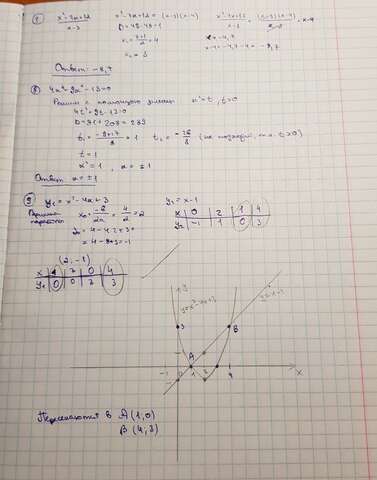 7) x²-7x+12 / x-3   x²-7x+12 = (x-3)(x-4)   x²-7x+12 / x-3 = (x-3)(x-4) / x-3 = x-4
D = 49-48=1
x₁ = 7+1 / 2 = 4   x = -4,7
x₂ = 3   x-4 = -4,7-4 = -8,7
Ответ: -8,7
8) 4x⁴+9x²-13=0
Решим с помощью замены x²=t, t>0
4t²+9t-13=0
D=81+208=289
t₁ = -9+17 / 8 = 1   t₂ = -26 / 8 (не подходит, т.к. t>0)
t=1
x²=1, x=±1
Ответ: x=±1
9) y₁ = x²-4x+3   y₂ = x-1
Вершина параболы x₀ = -b / 2a = 4 / 2 = 2
x 0 2 1 4
y₂ -1 1 0 3
y₀ = 4-4·2+3=
= 4-8+3=-1
(2,-1)
x 1 3 0 4
y₁ 0 0 3 3
y
y=x²-4x+3
y=x-1
3
B
A
0 1 2 4 x
-1
Пересекаются в A(1,0)
B(4,3)